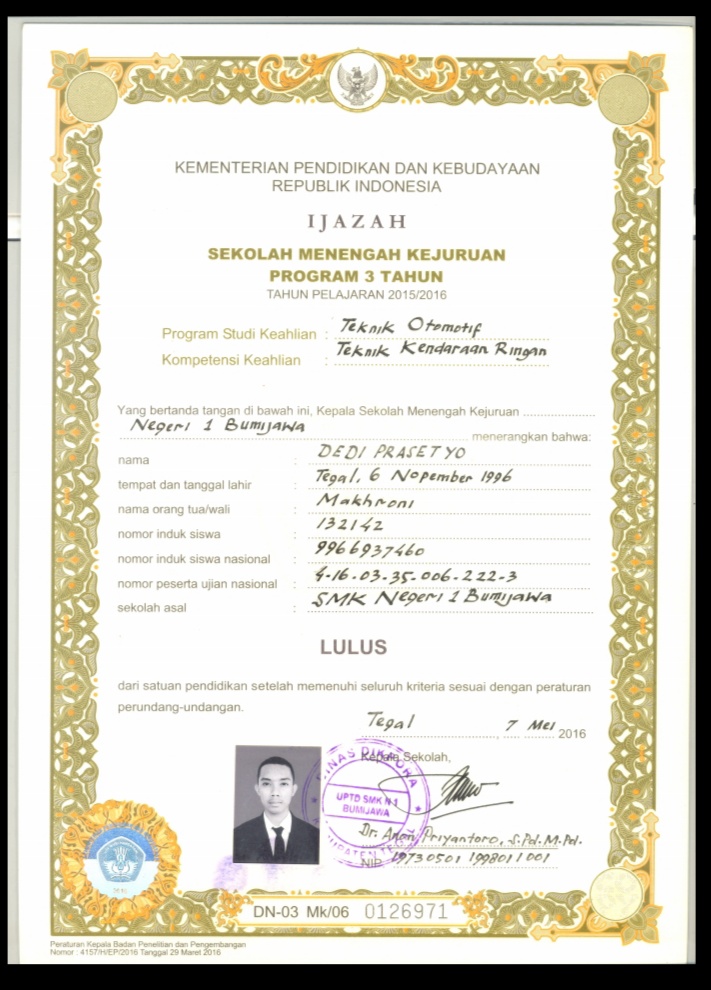 KEMENTERIAN PENDIDIKAN DAN KEBUDAYAAN
REPUBLIK INDONESIA
IJAZAH
SEKOLAH MENENGAH KEJURUAN
PROGRAM 3 TAHUN
TAHUN PELAJARAN 2015/2016
Program Studi Keahlian : Teknik Otomotif
Kompetensi Keahlian : Teknik Kendaraan Ringan
Yang bertanda tangan di bawah ini, Kepala Sekolah Menengah Kejuruan
Negeri 1 Bumijawa menerangkan bahwa:
nama : DEDI PRASETYO
tempat dan tanggal lahir : Tegal, 6 Nopember 1996
nama orang tua/wali : Makhroni
nomor induk siswa : 132142
nomor induk siswa nasional : 9966937460
nomor peserta ujian nasional : 4-16-03-35-006-222-3
sekolah asal : SMK Negeri 1 Bumijawa
LULUS
dari satuan pendidikan setelah memenuhi seluruh kriteria sesuai dengan peraturan
perundang-undangan.
Tegal, 7 Mei 2016
Kepala Sekolah,
UPTD SMK N 1
BUMIJAWA
Priyantoro, S.Pd. M.Pd.
NIP 19730501 199801 1 001
DN-03 Mk/06 0126971
Peraturan Kepala Badan Penelitian dan Pengembangan
Nomor : 4157/H/EP/2016 Tanggal 29 Maret 2016